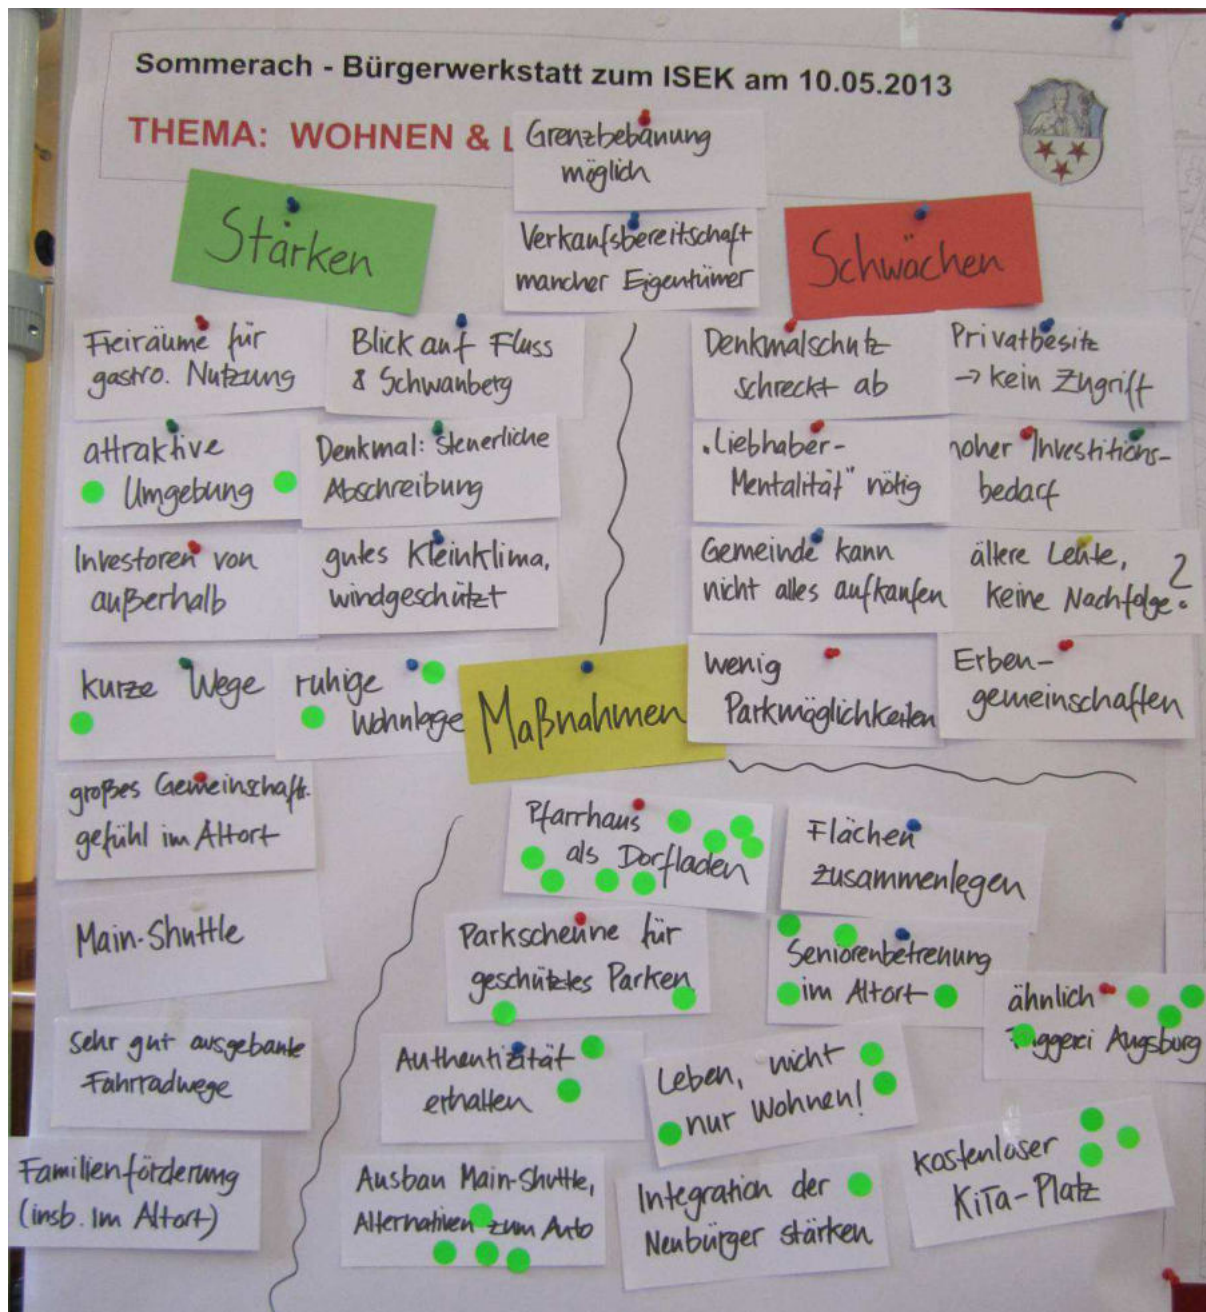 Sommerach - Bürgerwerkstatt zum ISEK am 10.05.2013
THEMA: WOHNEN & L
Grenzbebauung
möglich
Verkaufsbereitschaft
mancher Eigentümer
Stärken
Freiräume für
gastro. Nutzung
Blick auf Fluss
& Schwanberg
attraktive
Umgebung
Denkmal: steuerliche
Abschreibung
Investoren von
außerhalb
gutes Kleinklima,
windgeschützt
kurze Wege
ruhige
Wohnlage
großes Gemeinschafts-
gefühl im Altort
Main-Shuttle
Sehr gut ausgebaute
Fahrradwege
Familienförderung
(insb. im Altort)
Schwächen
Denkmalschutz
schreckt ab
Privatbesitz
→ kein Zugriff
"Liebhaber-
Mentalität" nötig
hoher Investitions-
bedarf
Gemeinde kann
nicht alles aufkaufen
ältere Leute,
keine Nachfolge?
wenig
Parkmöglichkeiten
Erben-
gemeinschaften
Maßnahmen
Pfarrhaus
als Dorfladen
Flächen
zusammenlegen
Parkscheune für
geschütztes Parken
Seniorenbetreuung
im Altort
ähnlich
Fuggerei Augsburg
Authentizität
erhalten
Leben, nicht
nur Wohnen!
Ausbau Main-Shuttle,
Alternativen zum Auto
Integration der
Neubürger stärken
kostenloser
KiTa-Platz